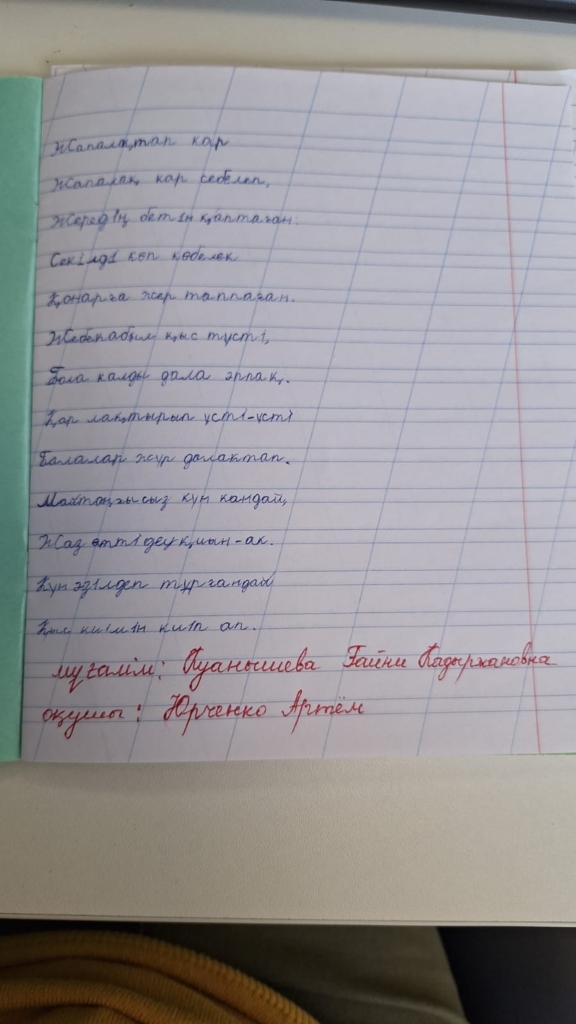 Жапалақтап кар
Жапалақ кар себелеп,
Жередің бетін қаптаған.
Секілді көп көбелек
Қонарға жер таппаған.
қыс түсті,
Бола калды дала аппақ.
Қар лақтырып үсті-үсті
Балалар жүр далактап.
күн кандай,
Жаз өтті деуқиын-ак.
Күн әзілдеп тұрғандай
Қыс киімін киіп ап.
мұғалім: Куанышева Гайни Кадыржановна
оқушы: Юрченко Артём